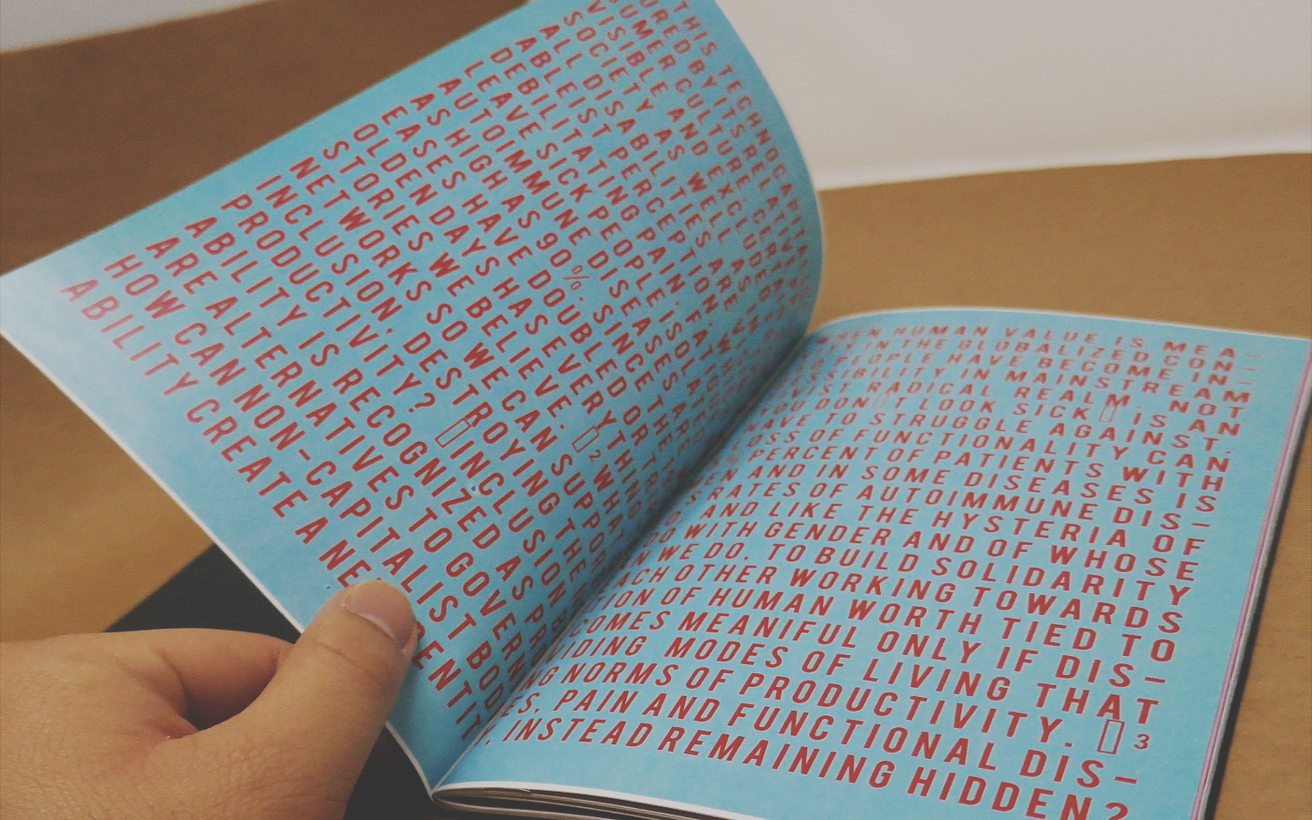 THIS
URED BY ITS
UMER CULTURE
VISIBLE AND EXCLUDED
SOCIETY AS WELL AS
ALL DISABILITIES ARE
ABLEIST PERCEPTION
DEBILITATING PAIN, FAT
LEAVE SICK PEOPLE ISOLA
AUTOIMMUNE DISEASES ARE
AS HIGH AS 90%. SINCE THE
EASES HAVE DOUBLED OR TR
OLDEN DAYS HAS EVERYTHING
STORIES WE BELIEVE. ▯2 WHAT
NETWORKS SO WE CAN SUPPOR
INCLUSION, DESTROYING THE
PRODUCTIVITY? ▯INCLUSION B
ABILITY IS RECOGNIZED AS PR
ARE ALTERNATIVES TO GOVERN
HOW CAN NON-CAPITALIST BOD
ABILITY CREATE A NE ENTIT
HUMAN VALUE IS MEA-
IN THE GLOBALIZED CON-
PEOPLE HAVE BECOME IN-
SIBILITY IN MAINSTREAM
ST RADICAL REALM. NOT
YOU DON▯T LOOK SICK▯ IS AN
HAVE TO STRUGGLE AGAINST.
LOSS OF FUNCTIONALITY CAN
PERCENT OF PATIENTS WITH
EN AND IN SOME DISEASES IS
S RATES OF AUTOIMMUNE DIS-
AND LIKE THE HYSTERIA OF
O WITH GENDER AND OF WHOSE
N WE DO, TO BUILD SOLIDARITY
EACH OTHER WORKING TOWARDS
ION OF HUMAN WORTH TIED TO
COMES MEANIFUL ONLY IF DIS-
IDING MODES OF LIVING THAT
NG NORMS OF PRODUCTIVITY. ▯3
ES, PAIN AND FUNCTIONAL DIS-
Y, INSTEAD REMAINING HIDDEN?